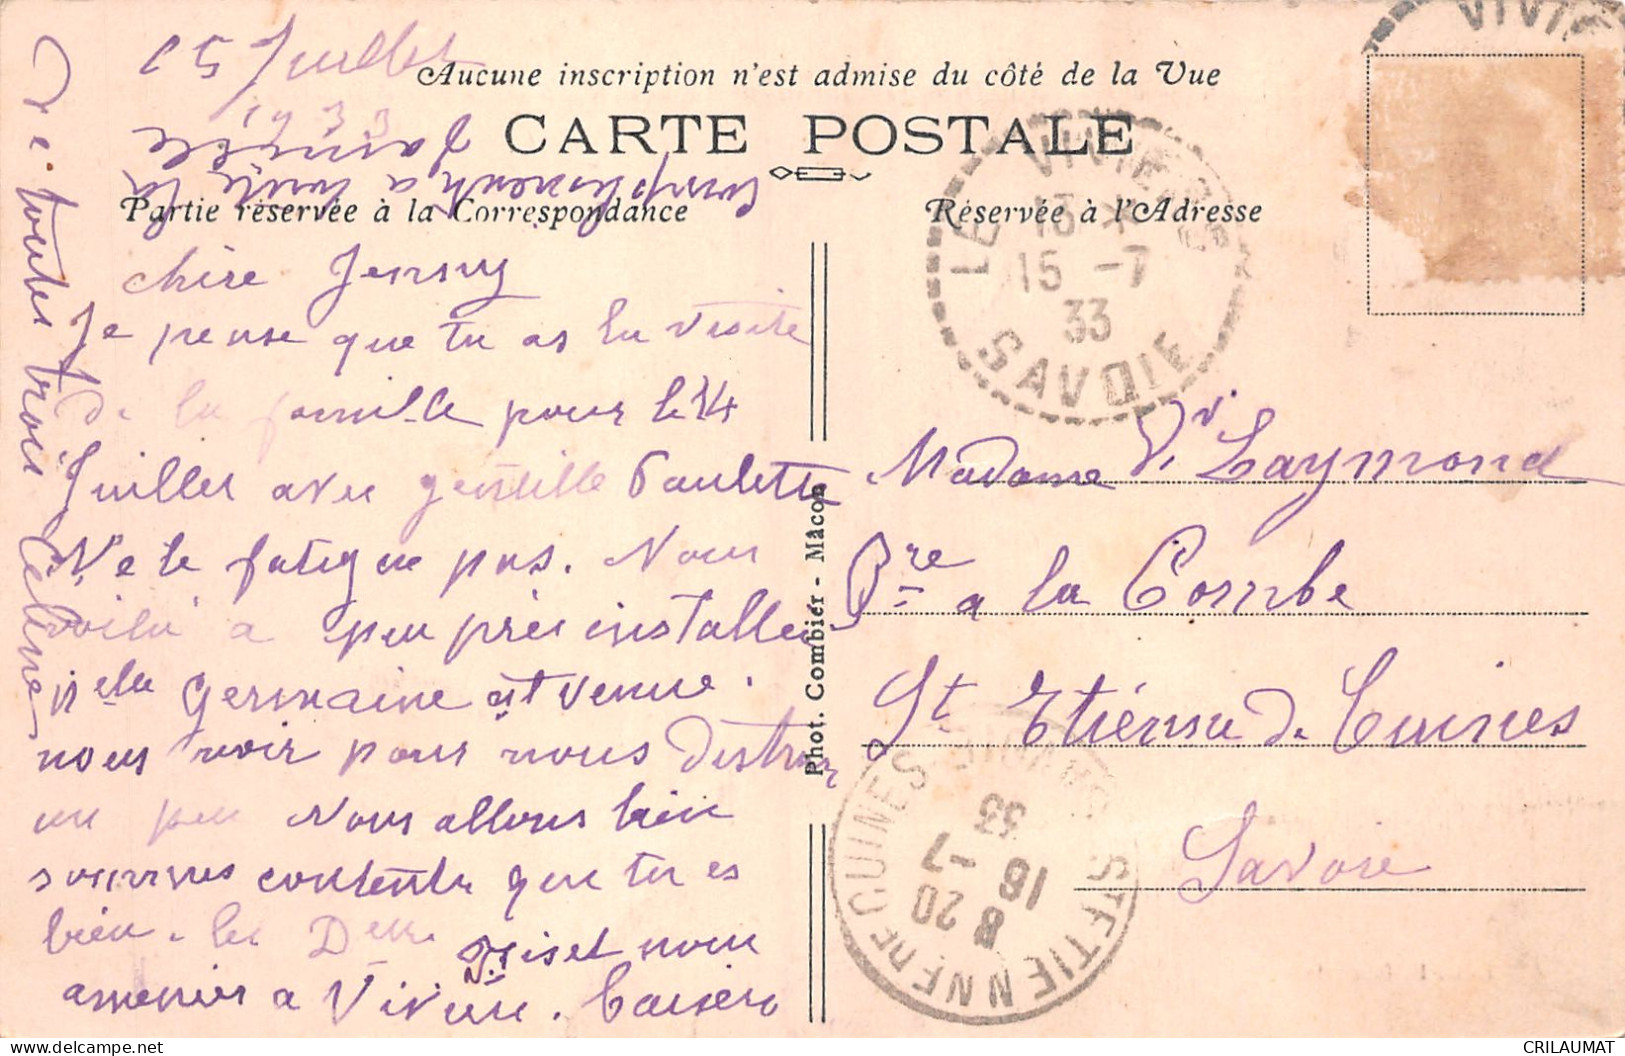 15 Juillet
Aucune inscription n'est admise du côté de la Vue
CARTE POSTALE
Partie réservée à la Correspondance
Réservée à l'Adresse
Compliments a toute la
famille
chère Jenny
Je pense que tu as eu la visite
de la famille pour le 14
Juillet avec gentille Paulette
Ne te fatigue pas. Nous
voilà a peu près installes
Germaine est venue
nous voir pour nous distraire
un peu Nous allons bien
sommes contentes que tu es
bien. les Delles nous
amener a Vivier. Baisers
de toutes trois Céline
Phot. Combier - Mâcon
Madame Vve Laymond
Pre a la Combe
St Etienne de Cuines
Savoie
LE VIVIERS
13
15 -7
33
SAVOIE
VIVIE
ST ETIENNE DE CUINES SAVOIE
8 20
16 -7
33
CRILAUMAT